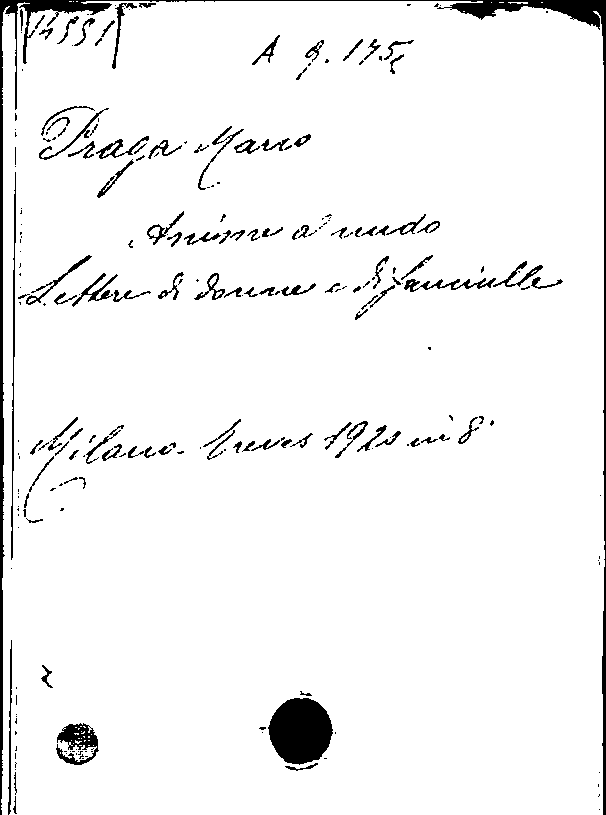 14551
A 9. 175
Praga Marco
Anime a nudo
Lettere di donne e di fanciulle
Milano Treves 1920 in 8°